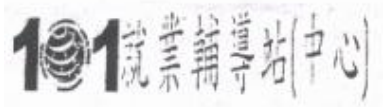 101就業輔導站(中心)